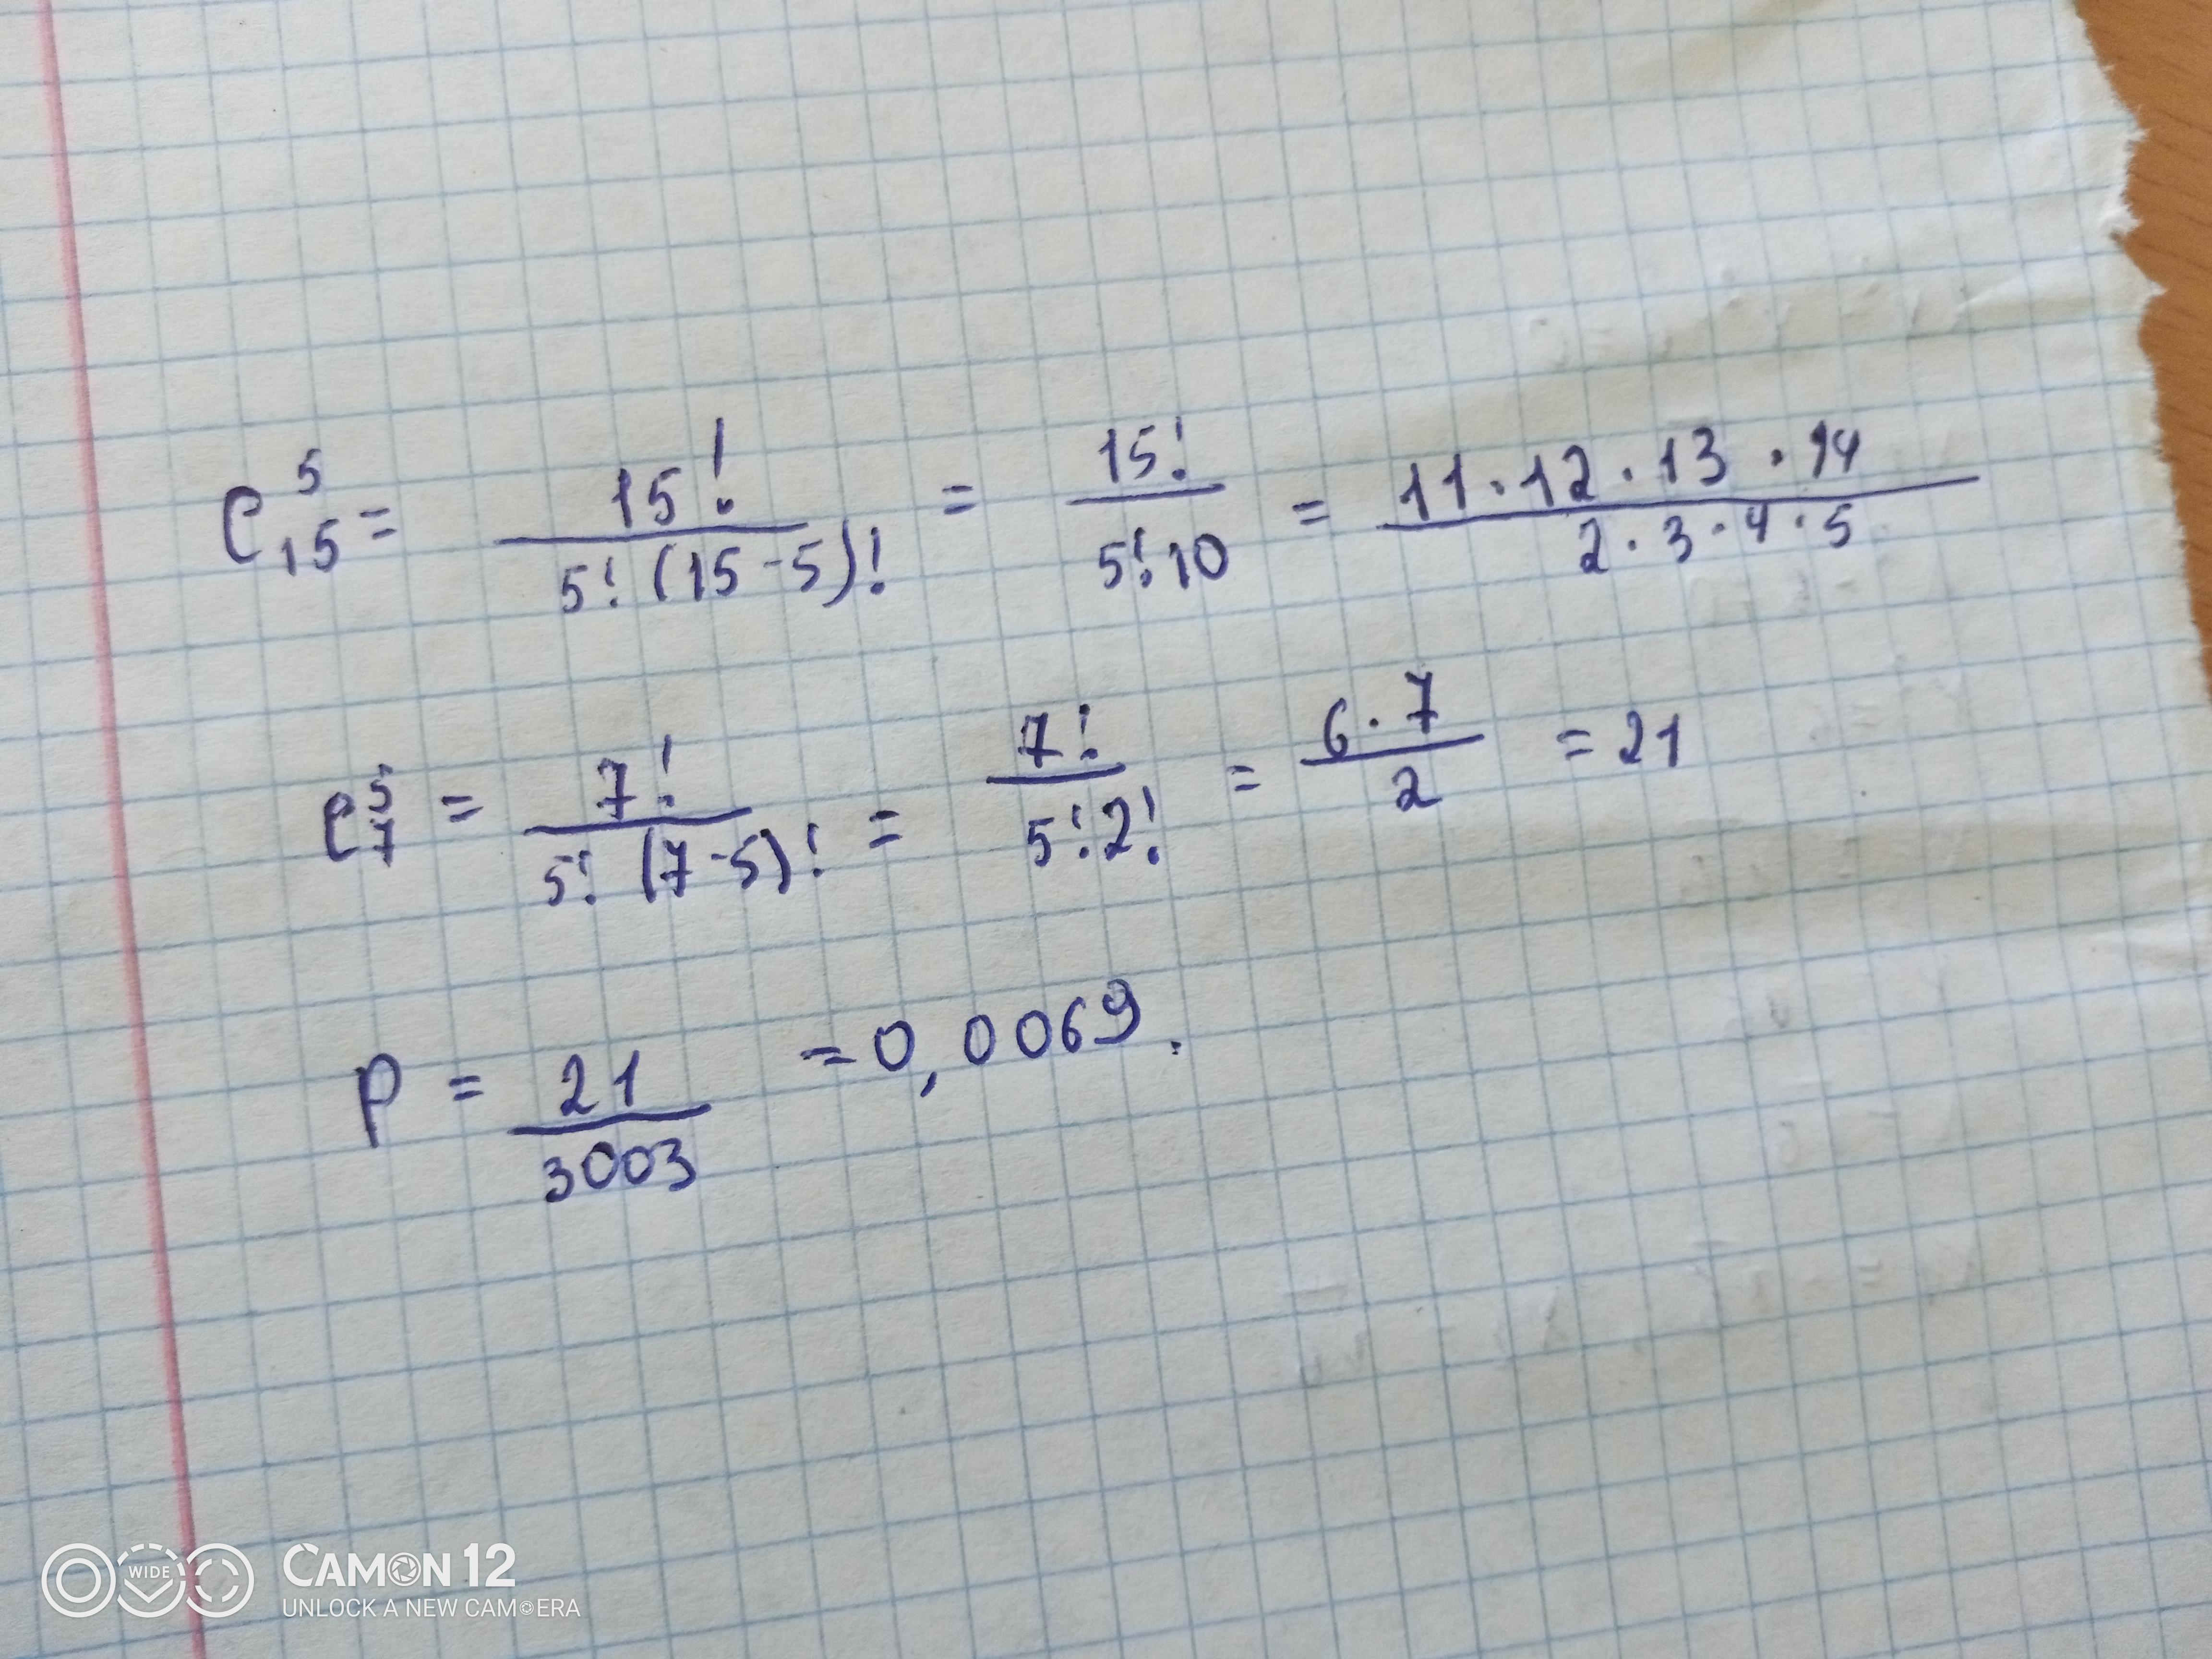 C₁₅⁵ = 15! / 5!(15-5)! = 15! / 5!10 = 11·12·13·14 / 2·3·4·5
C₇⁵ = 7! / 5!(7-5)! = 7! / 5!2! = 6·7 / 2 = 21
P = 21 / 3003 = 0,0069.
WIDE
CAMON 12
UNLOCK A NEW CAMERA